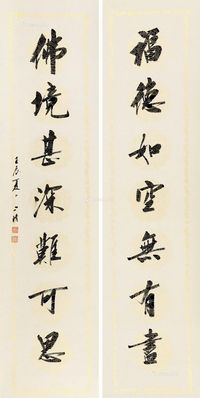 福德如空無有盡
佛境甚深難可思